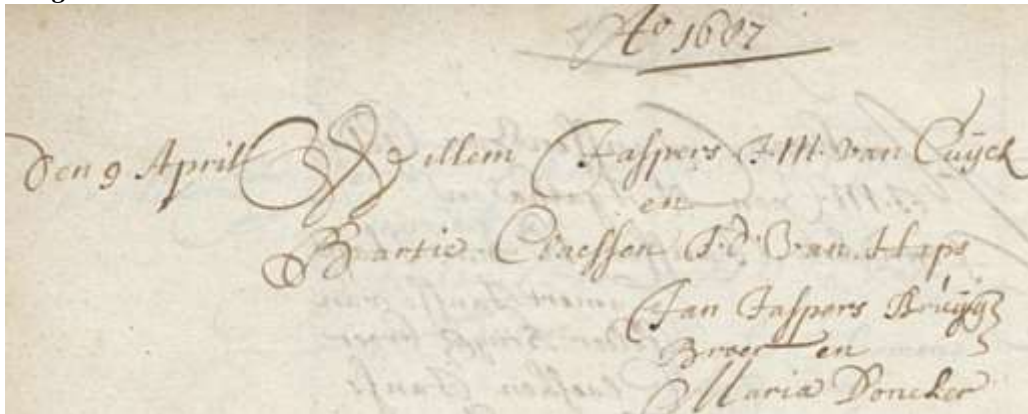 Ao 1687
Den 9 April Willem Jaspers J.M. van Cuÿck
en
Bartie Claessen J.d. van Haps
Jan Jaspers Bruÿg
Broer en
Maria Doncker